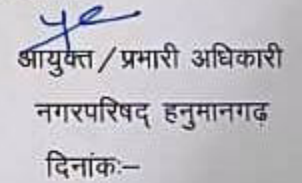 आयुक्त / प्रभारी अधिकारी
नगरपरिषद् हनुमानगढ़
दिनांकः–